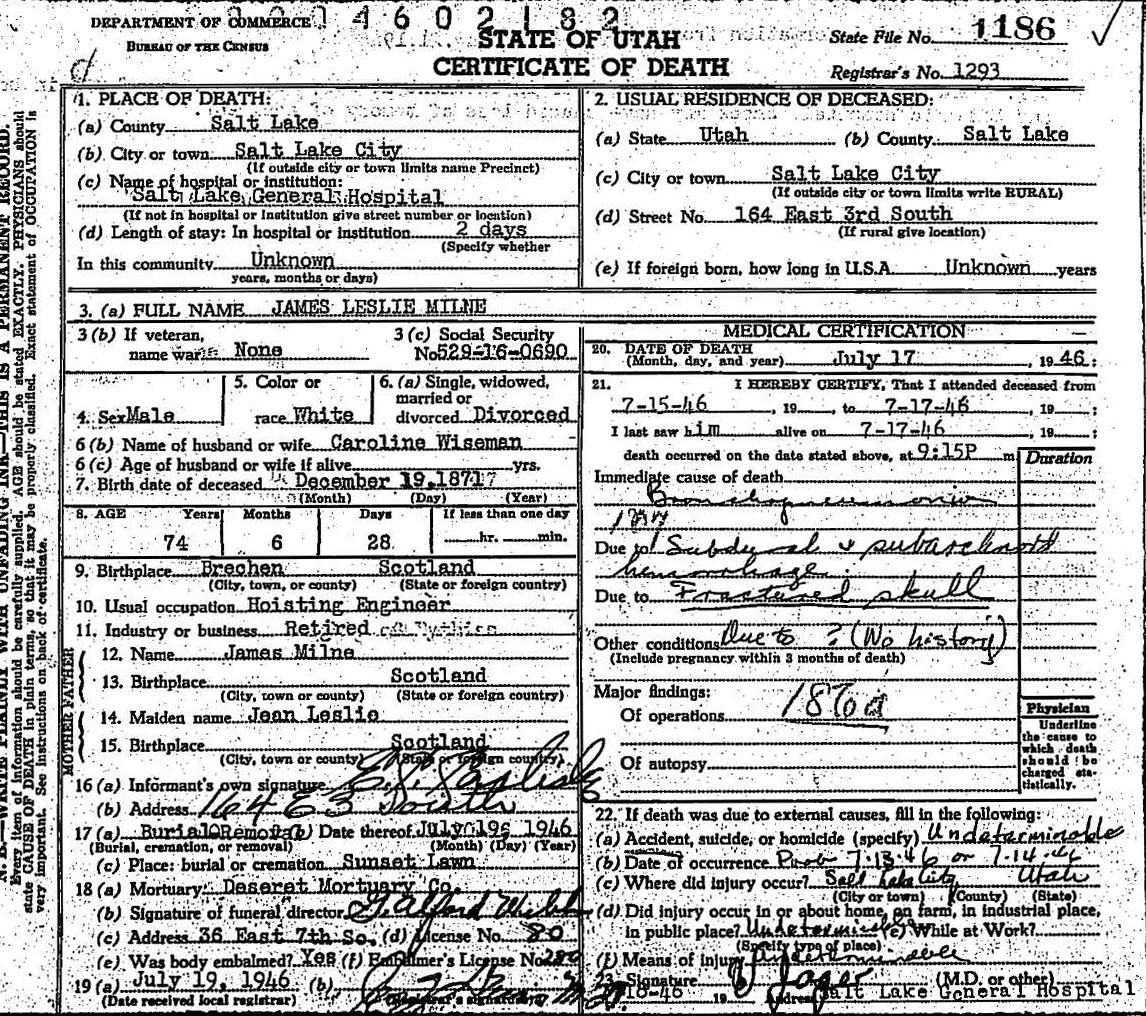 DEPARTMENT OF COMMERCE
BUREAU OF THE CENSUS
004602182
STATE OF UTAH
CERTIFICATE OF DEATH
State File No. 1186
Registrar's No. 1293
N. B.—WRITE PLAINLY WITH UNFADING INK—THIS IS A PERMANENT RECORD.
Every item of information should be carefully supplied. AGE should be stated EXACTLY. PHYSICIANS should
state CAUSE OF DEATH in plain terms, so that it may be properly classified. Exact statement of OCCUPATION is
very important. See instructions on back of certificate.
1. PLACE OF DEATH:
(a) County Salt Lake
(b) City or town Salt Lake City
(If outside city or town limits name Precinct)
(c) Name of hospital or institution:
Salt Lake General Hospital
(If not in hospital or institution give street number or location)
(d) Length of stay: In hospital or institution 2 days
(Specify whether
In this community Unknown
years, months or days)
2. USUAL RESIDENCE OF DECEASED:
(a) State Utah (b) County Salt Lake
(c) City or town Salt Lake City
(If outside city or town limits write RURAL)
(d) Street No. 164 East 3rd South
(If rural give location)
(e) If foreign born, how long in U.S.A Unknown years
3. (a) FULL NAME JAMES LESLIE MILNE
3 (b) If veteran,
name war None
3 (c) Social Security
No 529-16-0690
4. Sex Male
5. Color or
race White
6. (a) Single, widowed,
married or
divorced Divorced
6 (b) Name of husband or wife Caroline Wiseman
6 (c) Age of husband or wife if alive yrs.
7. Birth date of deceased December 19, 1871
(Month) (Day) (Year)
8. AGE Years Months Days If less than one day
74 6 28 hr. min.
9. Birthplace Brechen Scotland
(City, town, or county) (State or foreign country)
10. Usual occupation Hoisting Engineer
11. Industry or business Retired
FATHER
12. Name James Milne
13. Birthplace Scotland
(City, town or county) (State or foreign country)
MOTHER
14. Maiden name Jean Leslie
15. Birthplace Scotland
(City, town or county) (State or foreign country)
16 (a) Informant's own signature
(b) Address 164 E 3 South
17 (a) Burial Removal (b) Date thereof July 19 1946
(Burial, cremation, or removal) (Month) (Day) (Year)
(c) Place: burial or cremation Sunset Lawn
18 (a) Mortuary Deseret Mortuary Co.
(b) Signature of funeral director
(c) Address 36 East 7th So. (d) License No. 80
(e) Was body embalmed? Yes (f) Embalmer's License No
19 (a) July 19, 1946 (b)
(Date received local registrar) (Registrar's signature)
MEDICAL CERTIFICATION
20. DATE OF DEATH
(Month, day, and year) July 17 1946:
21. I HEREBY CERTIFY, That I attended deceased from
7-15-46, 19 , to 7-17-46, 19 ;
I last saw him alive on 7-17-46, 19 ;
death occurred on the date stated above, at 9:15P m
Duration
Immediate cause of death
Bronchopneumonia
Due to Subdural & subarachnoid
hemorrhage.
Due to Fractured skull
Other conditions Due to ? (No history)
(Include pregnancy within 3 months of death)
Major findings:
Of operations 186a
Of autopsy
Physician
Underline
the cause to
which death
should be
charged sta-
tistically.
22. If death was due to external causes, fill in the following:
(a) Accident, suicide, or homicide (specify) Undeterminable
(b) Date of occurrence Prob 7-13-46 or 7-14-46
(c) Where did injury occur? Salt Lake City Utah
(City or town) (County) (State)
(d) Did injury occur in or about home, on farm, in industrial place,
in public place? Undeterminable (e) While at Work?
(Specify type of place)
(f) Means of injury Undeterminable
23 Signature (M.D. or other)
18-46 19 Address Salt Lake General Hospital